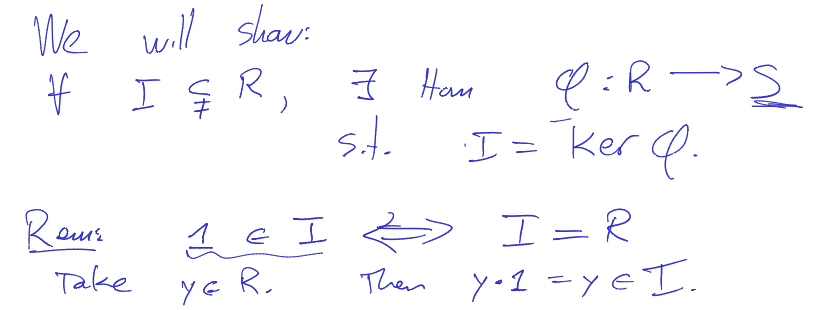 We will show:
∀ I ⊊ R, ∃ Hom φ : R ⟶ S
s.t. I = Ker φ.
Rem: 1 ∈ I ⟺ I = R
Take y ∈ R. Then y·1 = y ∈ I.